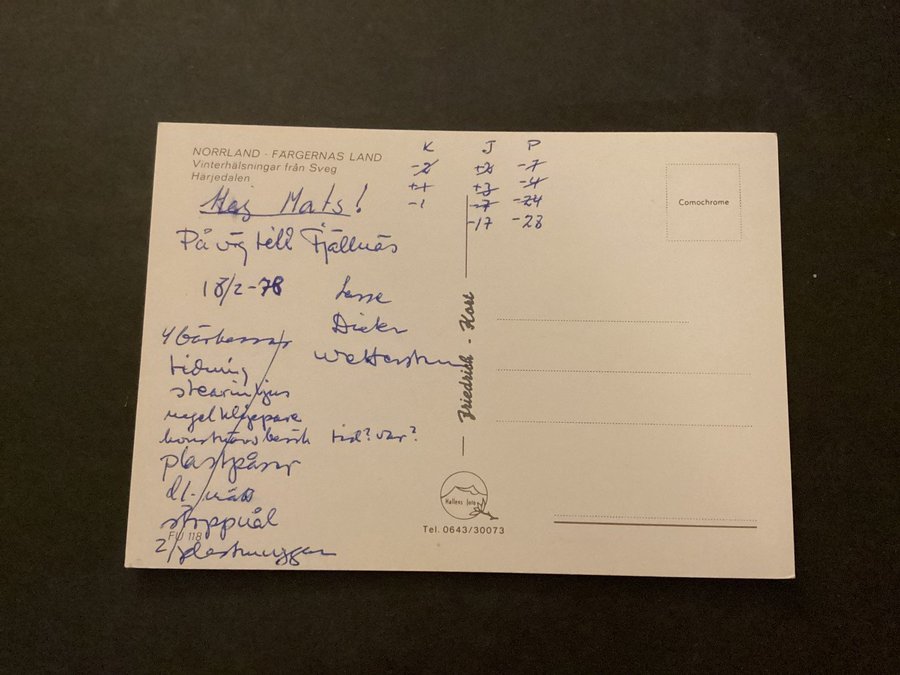 NORRLAND - FÄRGERNAS LAND
Vinterhälsningar från Sveg
Härjedalen
K J P
-2 +2 -7
+1 +3 -4
-1 -7 -24
-17 -28
Comochrome
Hej Mats!
På väg till Fjällnäs
18/2-78
Lasse
Dieter
tidning
stearinljus
nagelklippare
tid? var?
plastpåsar
dl-mått
stoppnål
2 plastmuggar
FU 118
Friedrich - Horst
Hallens foto
Tel. 0643/30073